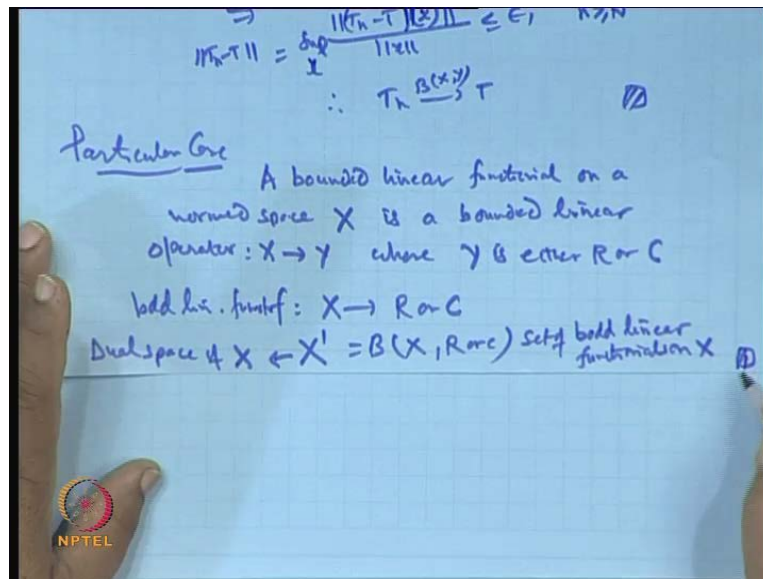 ⇒ ||(Tn-T)(x)|| ≤ ε, n≥N
||Tn-T|| = Sup x ||x||
∴ Tn B(X,Y)→ T
Particular Case
A bounded linear functional on a
normed space X is a bounded linear
operator: X → Y where Y is either R or C
bdd lin. functl: X → R or C
Dual space of X ← X' = B(X, R or C) Set of bdd linear
functionals on X
NPTEL